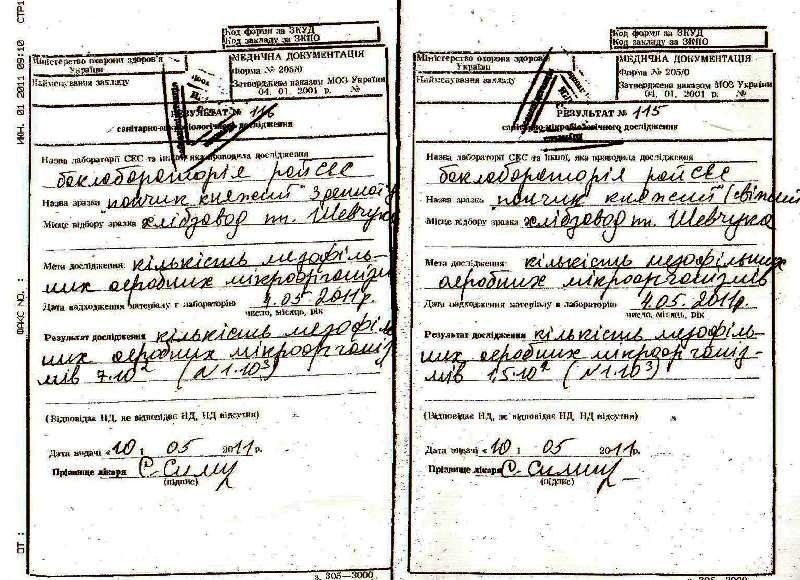 ИЮН. 01 2011 09:10 СТР1
ФАКС NO. :
ОТ :
Код форми за ЗКУД
Код закладу за ЗКПО
Міністерство охорони здоров'я
України
Найменування закладу
МЕДИЧНА ДОКУМЕНТАЦІЯ
Форма № 205/0
Затверджена наказом МОЗ України
04. 01. 2001 р. №
РЕЗУЛЬТАТ № 116
санітарно-мікробіологічного дослідження
Назва лабораторії СЕС та іншої, яка проводила дослідження
баклабораторія рай СЕС
Назва зразка "пончик княжий" 3 денної
Місце відбору зразка хлібзавод пп. Шевчука
Мета дослідження кількість мезофіль-
них аеробних мікроорганізмів
Дата надходження матеріалу в лабораторію 4.05 2011р.
число, місяць, рік
Результат дослідження кількість мезофіль-
них аеробних мікроорганіз-
мів 7·10² (N 1·10³)
(Відповідає НД, не відповідає НД, НД відсутня)
Дата видачі «10» 05 2011 р.
Прізвище лікаря
(підпис)
з. 305—3000
Код форми за ЗКУД
Код закладу за ЗКПО
Міністерство охорони здоров'я
України
Найменування закладу
МЕДИЧНА ДОКУМЕНТАЦІЯ
Форма № 205/0
Затверджена наказом МОЗ України
04. 01. 2001 р. №
РЕЗУЛЬТАТ № 115
санітарно-мікробіологічного дослідження
Назва лабораторії СЕС та іншої, яка проводила дослідження
баклабораторія рай СЕС
Назва зразка "пончик княжий" (свіжий
Місце відбору зразка хлібзавод пп. Шевчука
Мета дослідження кількість мезофільних
аеробних мікроорганізмів
Дата надходження матеріалу в лабораторію 4.05. 2011р.
число, місяць, рік
Результат дослідження кількість мезофіль-
них аеробних мікроорганіз-
мів 1,5·10² (N 1·10³)
(Відповідає НД, не відповідає НД, НД відсутня)
Дата видачі «10» 05 2011 р.
Прізвище лікаря
(підпис)
з. 305—3000